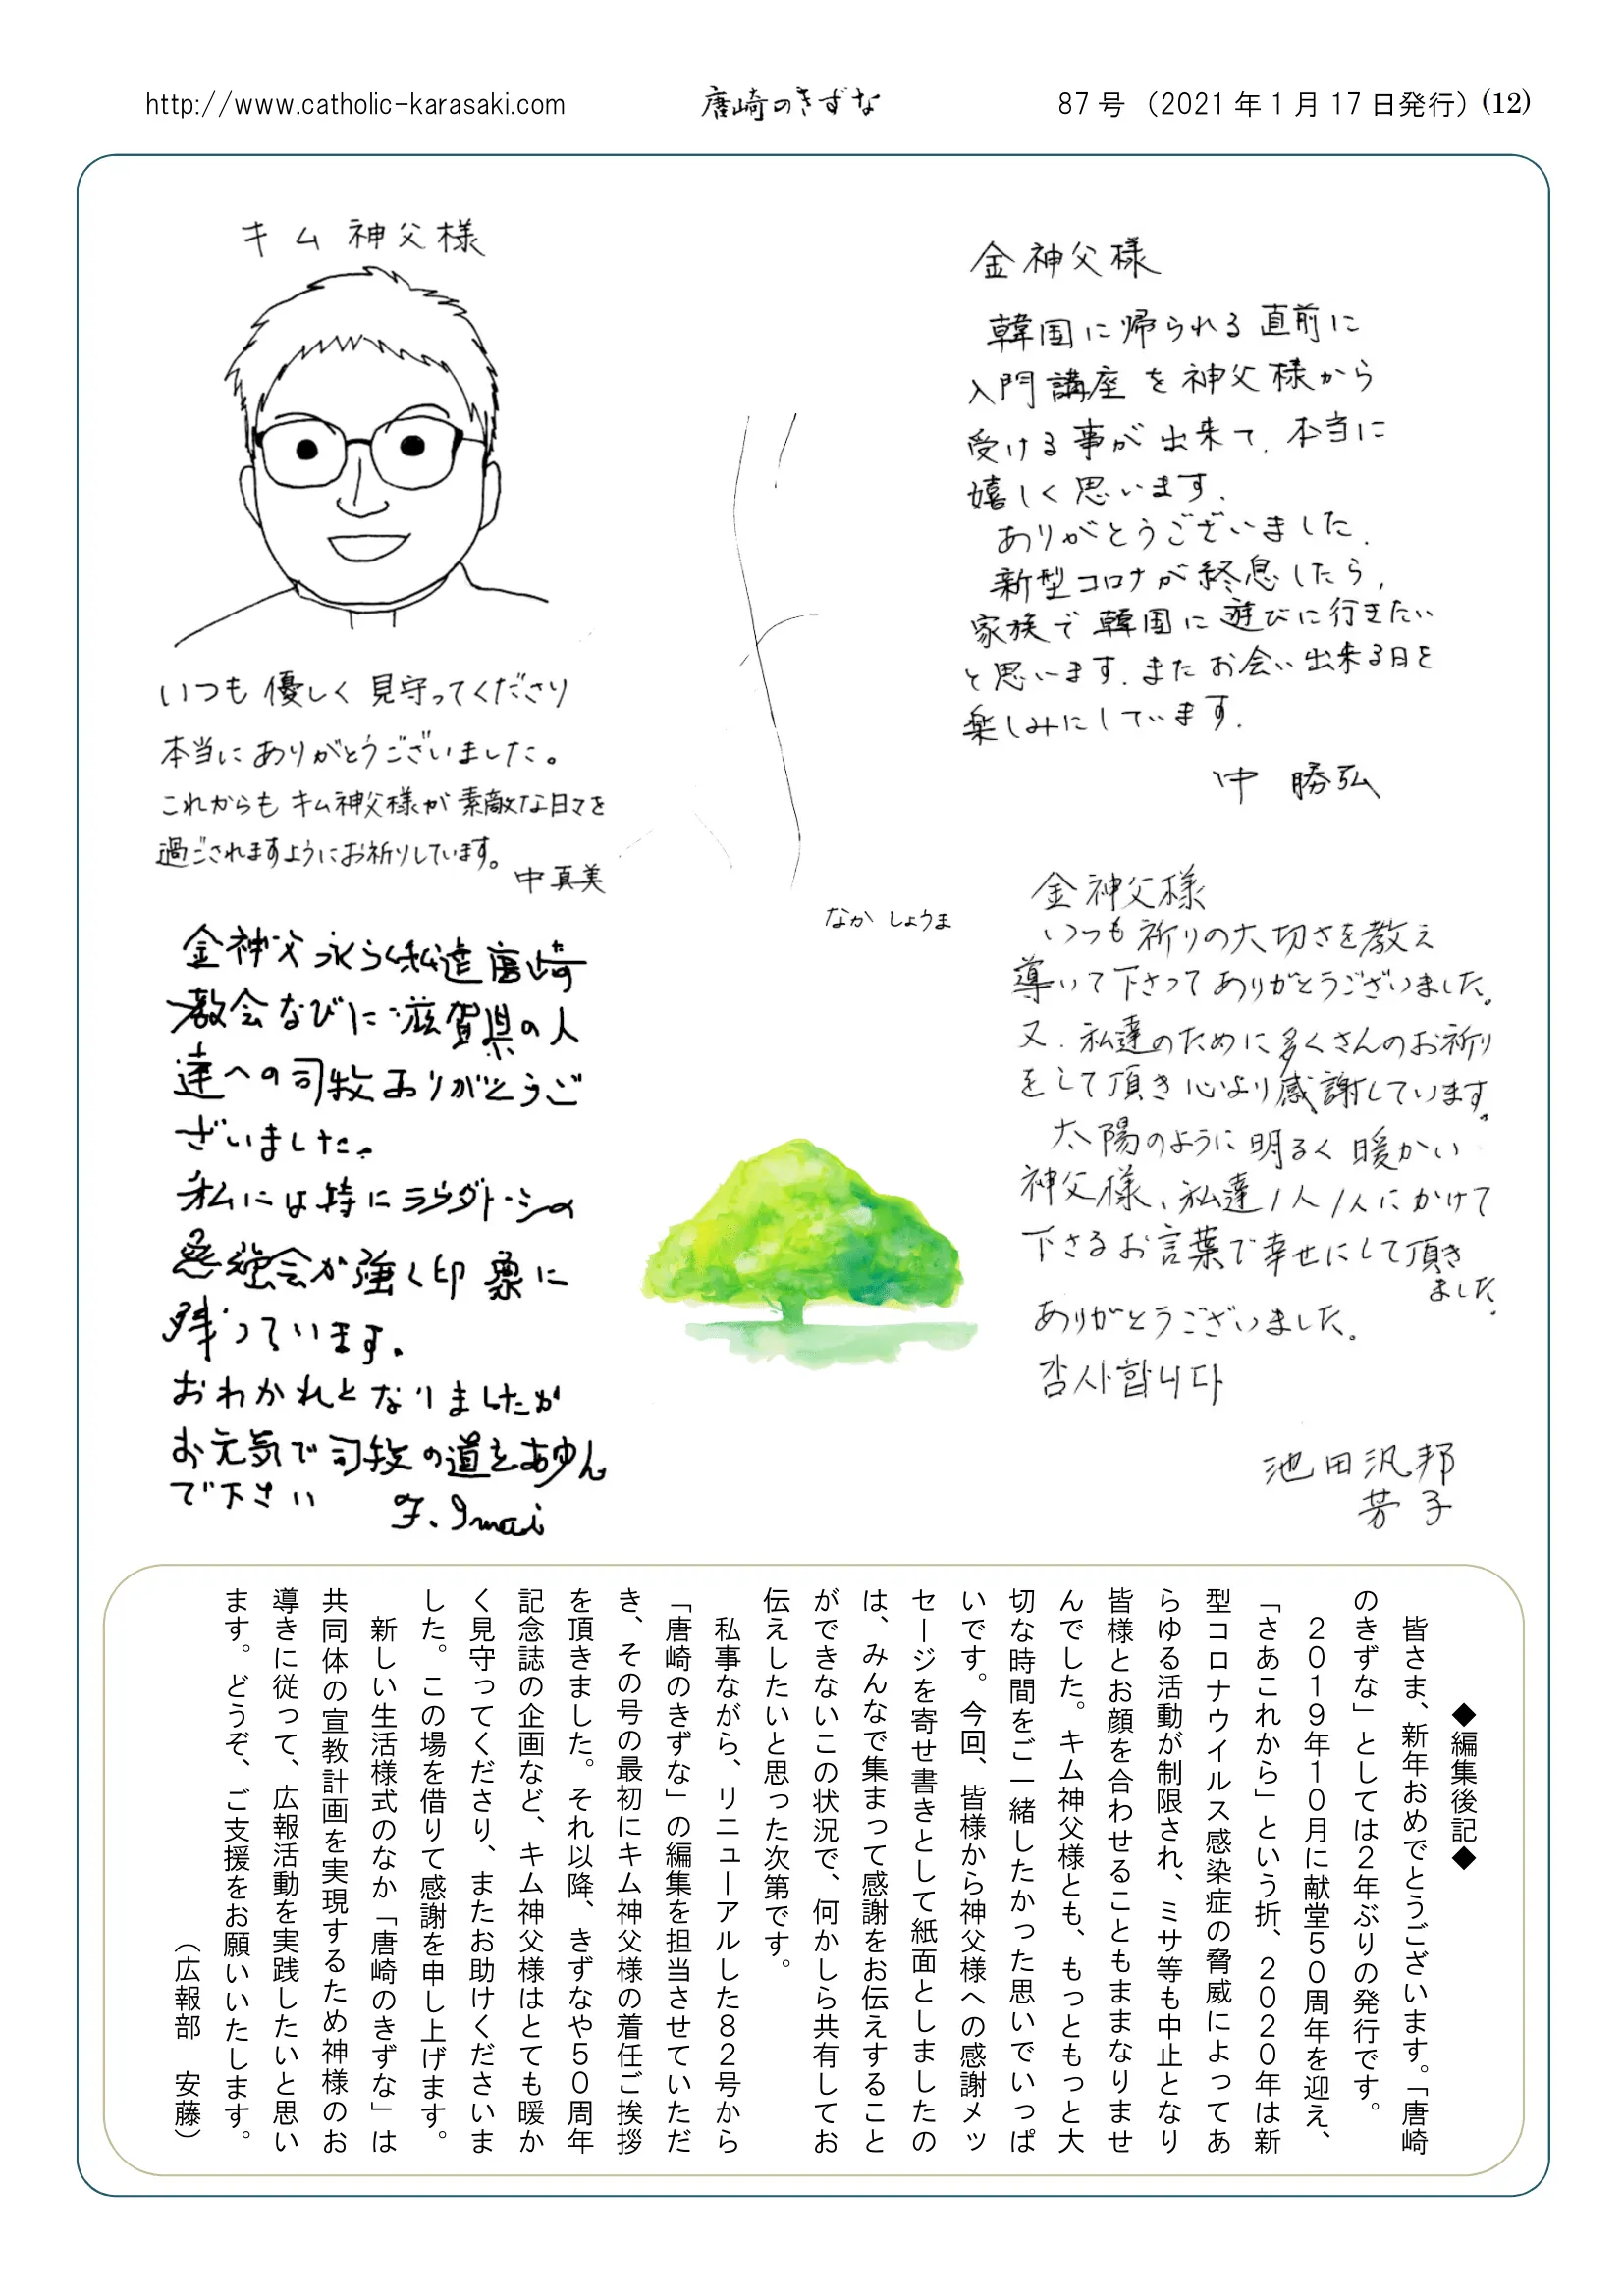 http://www.catholic-karasaki.com
唐崎のきずな
87号（2021年1月17日発行）(12)
キム神父様
いつも優しく見守ってくださり
本当にありがとうございました。
これからもキム神父様が素敵な日々を
過ごされますようにお祈りしています。
中真美
金神父様
韓国に帰られる直前に
入門講座を神父様から
受ける事が出来て、本当に
嬉しく思います。
ありがとうございました。
新型コロナが終息したら、
家族で韓国に遊びに行きたい
と思います。またお会い出来る日を
楽しみにしています。
中 勝弘
なか しょうま
金神父永らく私達唐崎
教会ならびに滋賀県の人
達への司牧ありがとうご
ざいました。
私には特にラウダト・シの
勉強会が強く印象に
残っています。
おわかれとなりましたが
お元気で司牧の道をあゆん
で下さい
F. Imai
金神父様
いつも祈りの大切さを教え
導いて下さってありがとうございました。
又、私達のために多くさんのお祈り
をして頂き心より感謝しています。
太陽のように明るく暖かい
神父様、私達1人1人にかけて
下さるお言葉で幸せにして頂き
ました。
ありがとうございました。
감사합니다
池田汎邦
芳子
◆編集後記◆
皆さま、新年おめでとうございます。「唐崎
のきずな」としては2年ぶりの発行です。
2019年10月に献堂50周年を迎え、
「さあこれから」という折、2020年は新
型コロナウイルス感染症の脅威によってあ
らゆる活動が制限され、ミサ等も中止となり
皆様とお顔を合わせることもままなりませ
んでした。キム神父様とも、もっともっと大
切な時間をご一緒したかった思いでいっぱ
いです。今回、皆様から神父様への感謝メッ
セージを寄せ書きとして紙面としましたの
は、みんなで集まって感謝をお伝えすること
ができないこの状況で、何かしら共有してお
伝えしたいと思った次第です。
私事ながら、リニューアルした82号から
「唐崎のきずな」の編集を担当させていただ
き、その号の最初にキム神父様の着任ご挨拶
を頂きました。それ以降、きずなや50周年
記念誌の企画など、キム神父様はとても暖か
く見守ってくださり、またお助けくださいま
した。この場を借りて感謝を申し上げます。
新しい生活様式のなか「唐崎のきずな」は
共同体の宣教計画を実現するため神様のお
導きに従って、広報活動を実践したいと思い
ます。どうぞ、ご支援をお願いいたします。
（広報部 安藤）